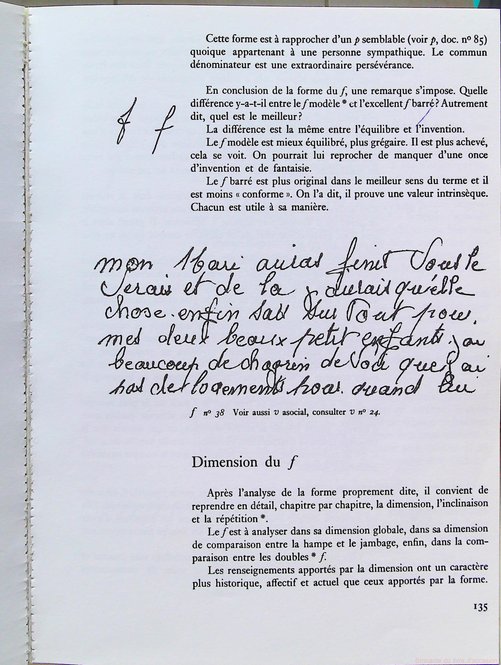 Cette forme est à rapprocher d'un p semblable (voir p, doc. nº 85)
quoique appartenant à une personne sympathique. Le commun
dénominateur est une extraordinaire persévérance.
En conclusion de la forme du f, une remarque s'impose. Quelle
différence y-a-t-il entre le f modèle * et l'excellent f barré? Autrement
dit, quel est le meilleur?
La différence est la même entre l'équilibre et l'invention.
Le f modèle est mieux équilibré, plus grégaire. Il est plus achevé,
cela se voit. On pourrait lui reprocher de manquer d'une once
d'invention et de fantaisie.
Le f barré est plus original dans le meilleur sens du terme et il
est moins « conforme ». On l'a dit, il prouve une valeur intrinsèque.
Chacun est utile à sa manière.
f f
mon Mari auras finit Vous le
Verais et de la j aurais qu'elle
chose. enfin sas sur Tout pour.
mes deux beaux petit enfants. j ai
beaucoup de chagrin de Voir que j ai
pas de logements pour. quand
f nº 38 Voir aussi v asocial, consulter v nº 24.
Dimension du f
Après l'analyse de la forme proprement dite, il convient de
reprendre en détail, chapitre par chapitre, la dimension, l'inclinaison
et la répétition *.
Le f est à analyser dans sa dimension globale, dans sa dimension
de comparaison entre la hampe et le jambage, enfin, dans la com-
paraison entre les doubles * f.
Les renseignements apportés par la dimension ont un caractère
plus historique, affectif et actuel que ceux apportés par la forme.
135